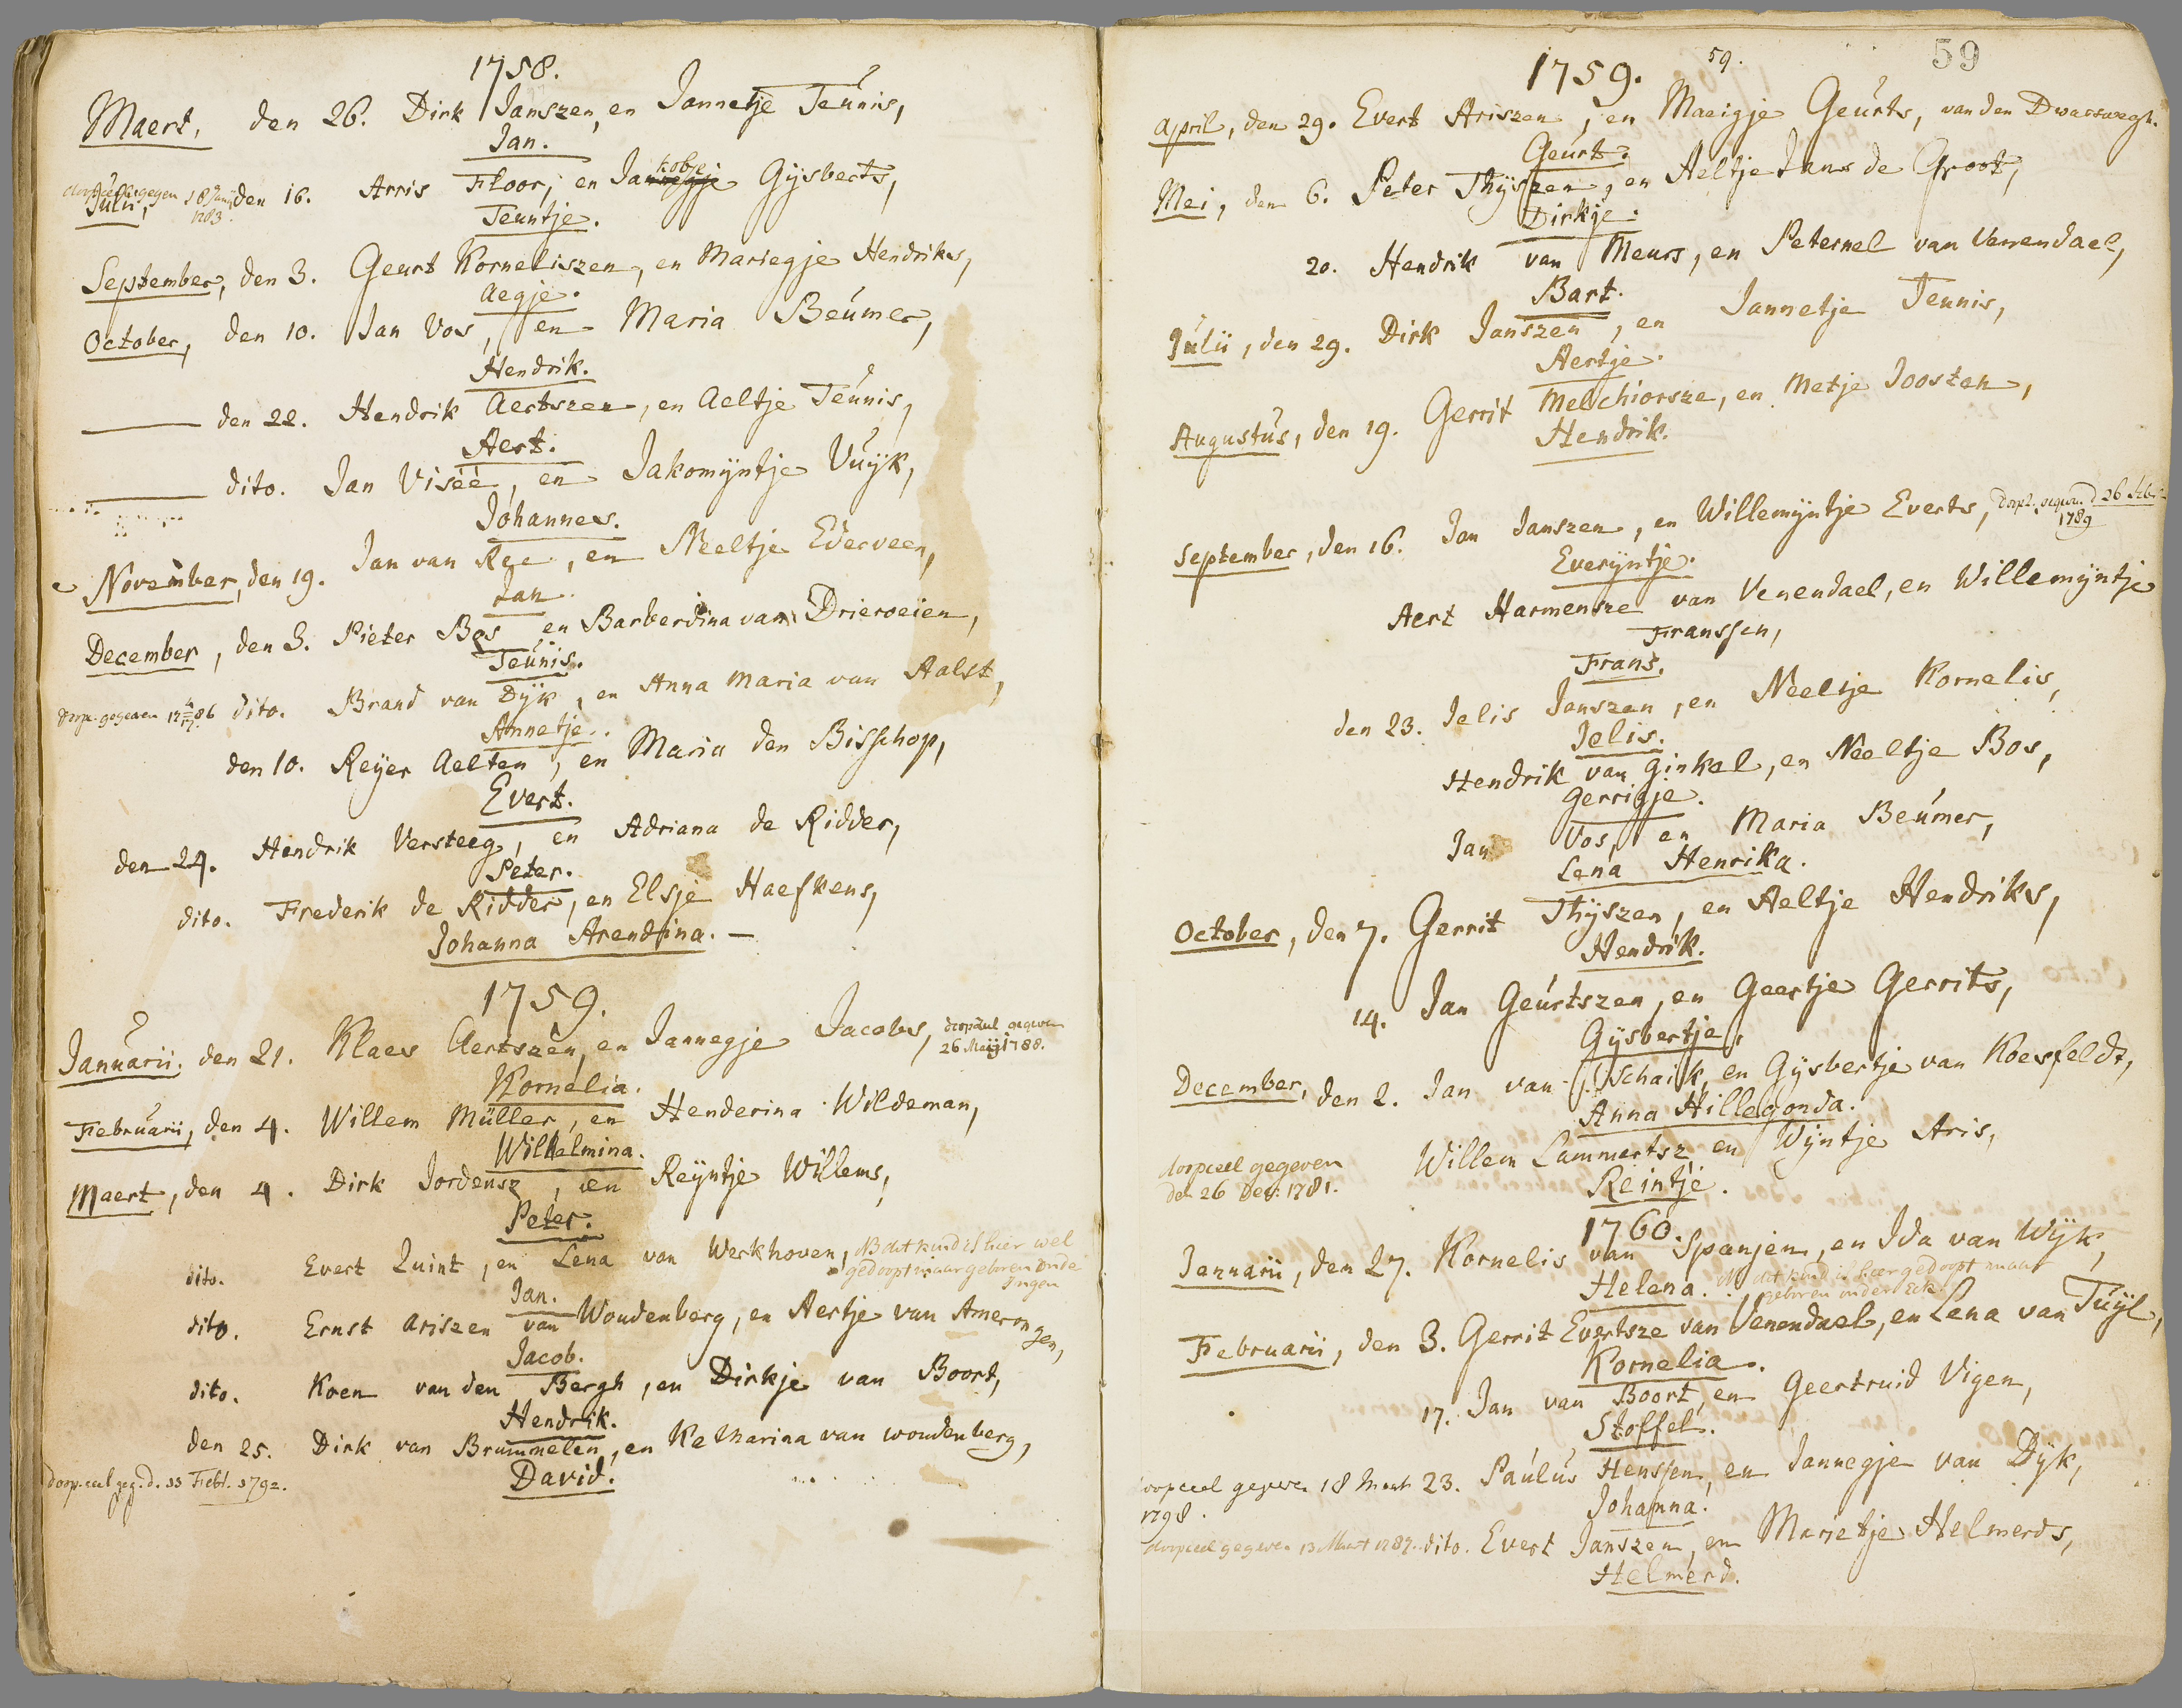 1758.
Maert, den 26. Dirk Janszen, en Jannetje Teunis,
Jan.
doopceel gegeven 18 Junij 1783.
Julii, den 16. Arris Floor, en Jakobje Gijsberts,
Teuntje.
September, den 3. Geurt Korneliszen, en Mariegje Hendriks,
Aegje.
October, den 10. Jan Vos, en Maria Beumer,
Hendrik.
den 22. Hendrik Aertszen, en Aeltje Teunis,
Aert.
dito. Jan Viseé, en Jakomijntje Vuijk,
Johannes.
November, den 19. Jan van Ree, en Neeltje Ederveen,
Jan.
December, den 3. Pieter Bos en Barberdina van Drieroeien,
Teunis.
dito. Brand van Dijk, en Anna Maria van Aalst,
Annetje.
den 10. Reijer Aelten, en Maria den Bisschop,
Evert.
den 24. Hendrik Versteeg, en Adriana de Ridder,
Peter.
dito. Frederik de Ridder, en Elsje Haefkens,
Johanna Arendina. —
1759.
Januarii, den 21. Klaes Aertszen, en Jannegje Jacobs, doopceel gegeven
26 Maij 1788.
Kornelia.
Februarii, den 4. Willem Müller, en Henderina Wildeman,
Wilhelmina.
Maert, den 4. Dirk Jordensz, en Reijntje Willems,
Peter.
dito. Evert Quint, en Lena van Werkhoven, NB dit kind is hier wel
gedoopt maar geboren onder
Ingen
Jan.
dito. Ernst Ariszen van Woudenberg, en Aertje van Amerongen,
Jacob.
dito. Koen van den Bergh, en Dirkje van Boort,
Hendrik.
den 25. Dirk van Brummelen, en Katharina van Woudenberg,
doop.ceel geg. d. 11 Febr. 1792.
David.
59. 59
1759.
April, den 29. Evert Ariszen, en Maeigje Geurts, van den Dwarswegh.
Geurt.
Mei, den 6. Peter Thijszen, en Aeltje Jans de Groot,
Dirkje.
20. Hendrik van Meurs, en Peternel van Venendael,
Bart.
Julii, den 29. Dirk Janszen, en Jannetje Teunis,
Aertje.
Augustus, den 19. Gerrit Melchiorsze, en Metje Joosten,
Hendrik.
September, den 16. Jan Janszen, en Willemijntje Everts,
1789
Everijntje.
Aert Harmensze van Venendael, en Willemijntje
Franssen,
Frans.
den 23. Jelis Janszen, en Neeltje Kornelis,
Jelis.
Hendrik van Ginkel, en Neeltje Bos,
Gerrigje.
Jan Vos, en Maria Beumer,
Lena Henrika.
October, den 7. Gerrit Thijszen, en Aeltje Hendriks,
Hendrik.
14. Jan Geurtszen, en Geertje Gerrits,
Gijsbertje.
December, den 2. Jan van Schaik, en Gijsbertje van Koesfeldt,
Anna Hillegonda.
doopceel gegeven
den 26 Dec: 1781.
Willem Lammertsz en Wijntje Aris,
Reintje.
1760.
Januarii, den 27. Kornelis van Spanjen, en Ida van Wijk,
Helena. NB dit kind is hier gedoopt maar
geboren onder Eck.
Februarii, den 3. Gerrit Evertsze van Venendael, en Lena van Tuijl,
Kornelia.
17. Jan van Boort, en Geertruid Vigen,
Stoffel.
doopceel gegeven 18 Maart
1798.
23. Paulus Henssen, en Jannegje van Dijk,
Johanna.
doopceel gegeven 13 Maart 1787. dito. Evert Janszen, en Marietje Helmerds,
Helmerd.